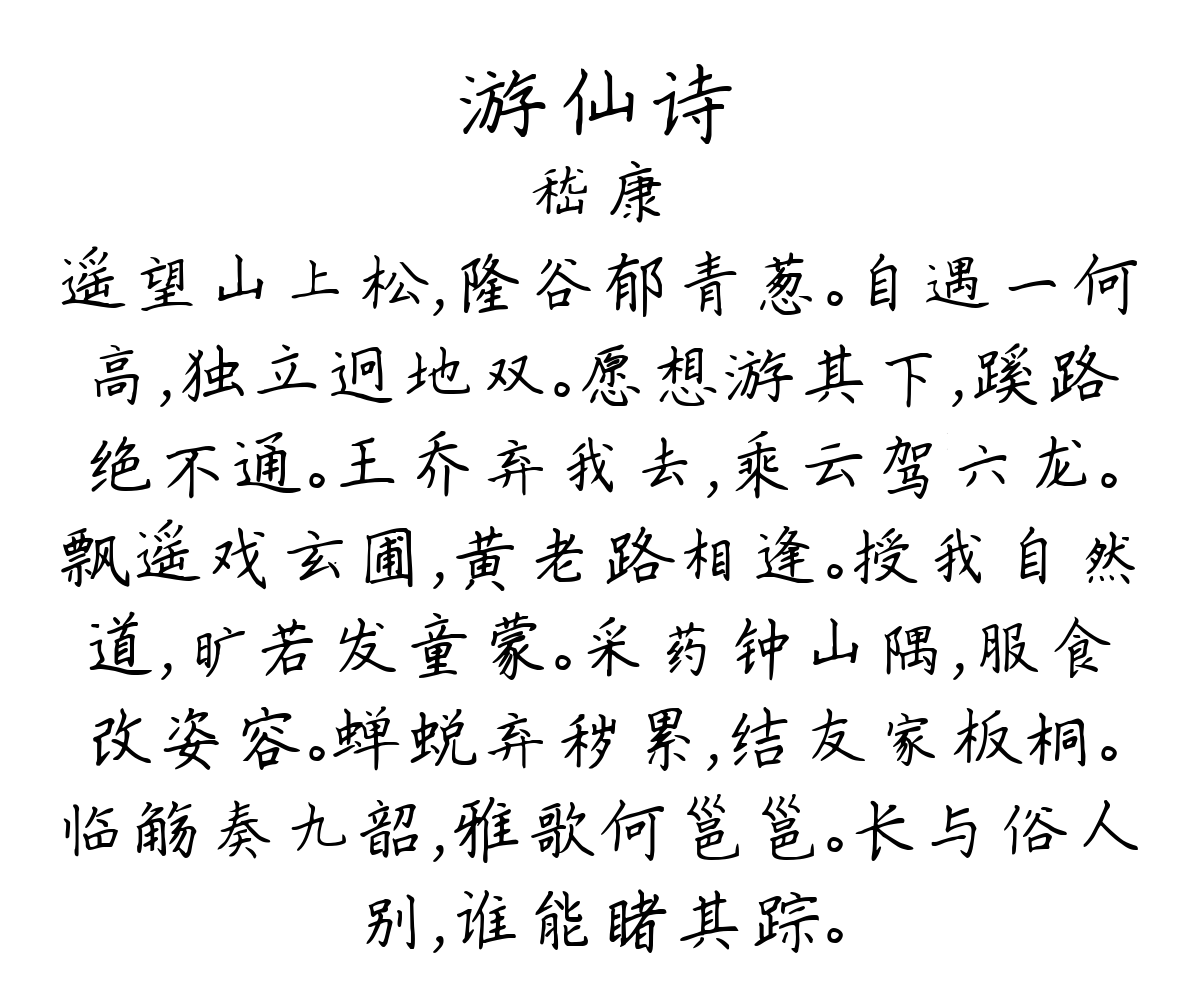 游仙诗
嵇康
遥望山上松,隆谷郁青葱。自遇一何
高,独立迥地双。愿想游其下,蹊路
绝不通。王乔弃我去,乘云驾六龙。
飘遥戏玄圃,黄老路相逢。授我自然
道,旷若发童蒙。采药钟山隅,服食
改姿容。蝉蜕弃秽累,结友家板桐。
临觞奏九韶,雅歌何邕邕。长与俗人
别,谁能睹其踪。